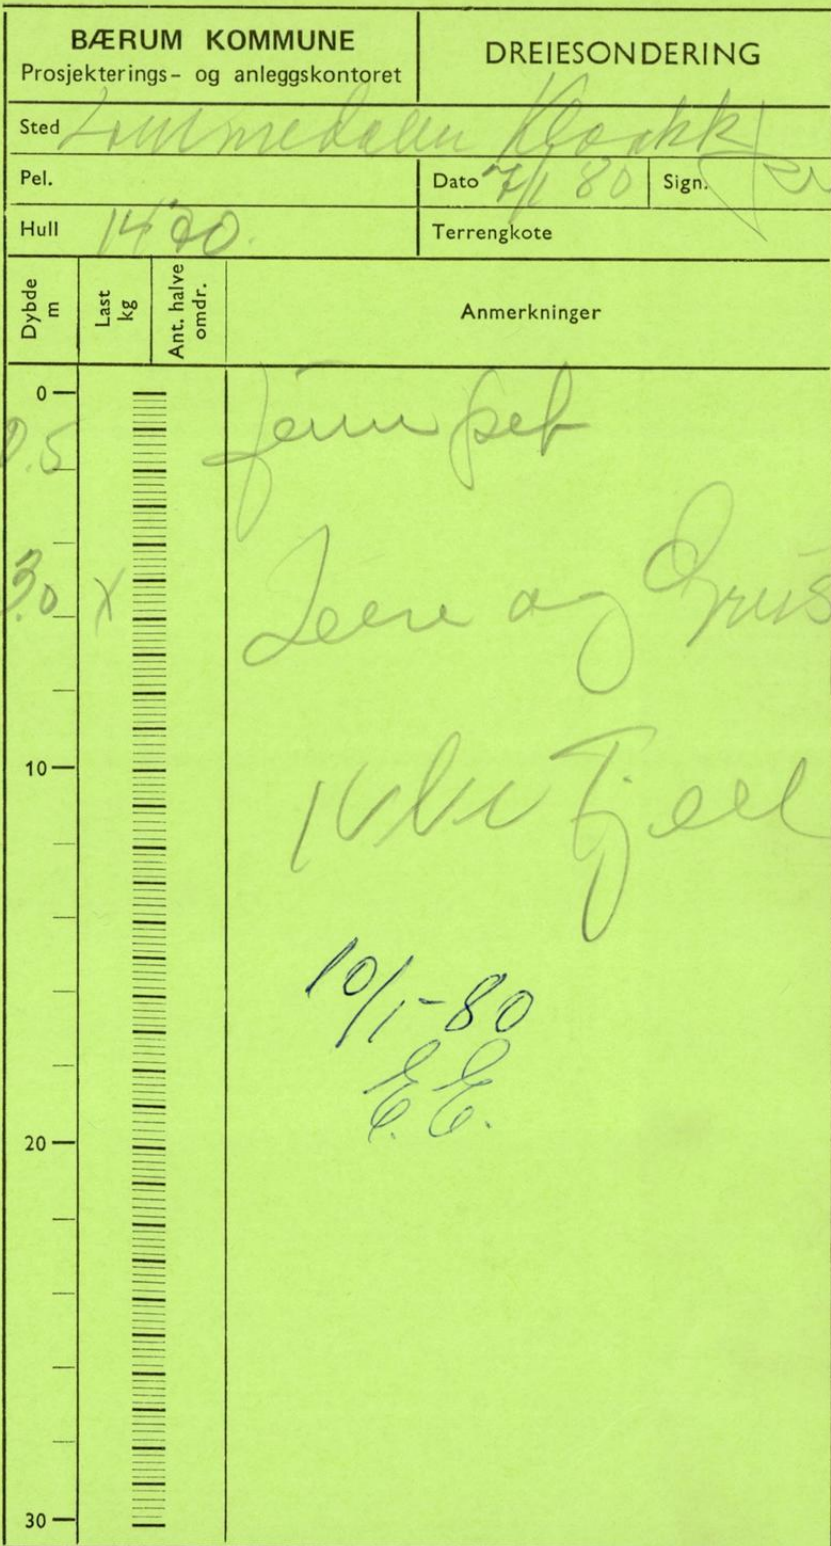 BÆRUM KOMMUNE
Prosjekterings- og anleggskontoret
DREIESONDERING
Sted Lommedalen Kloakk
Pel.
Dato 7/1 80
Sign.
Hull 1420.
Terrengkote
Dybde
m
Last
kg
Ant. halve
omdr.
Anmerkninger
0
0.5
3.0 X
Leire og Grus
10
Ikke Fjell
10/1-80
E.E.
20
30